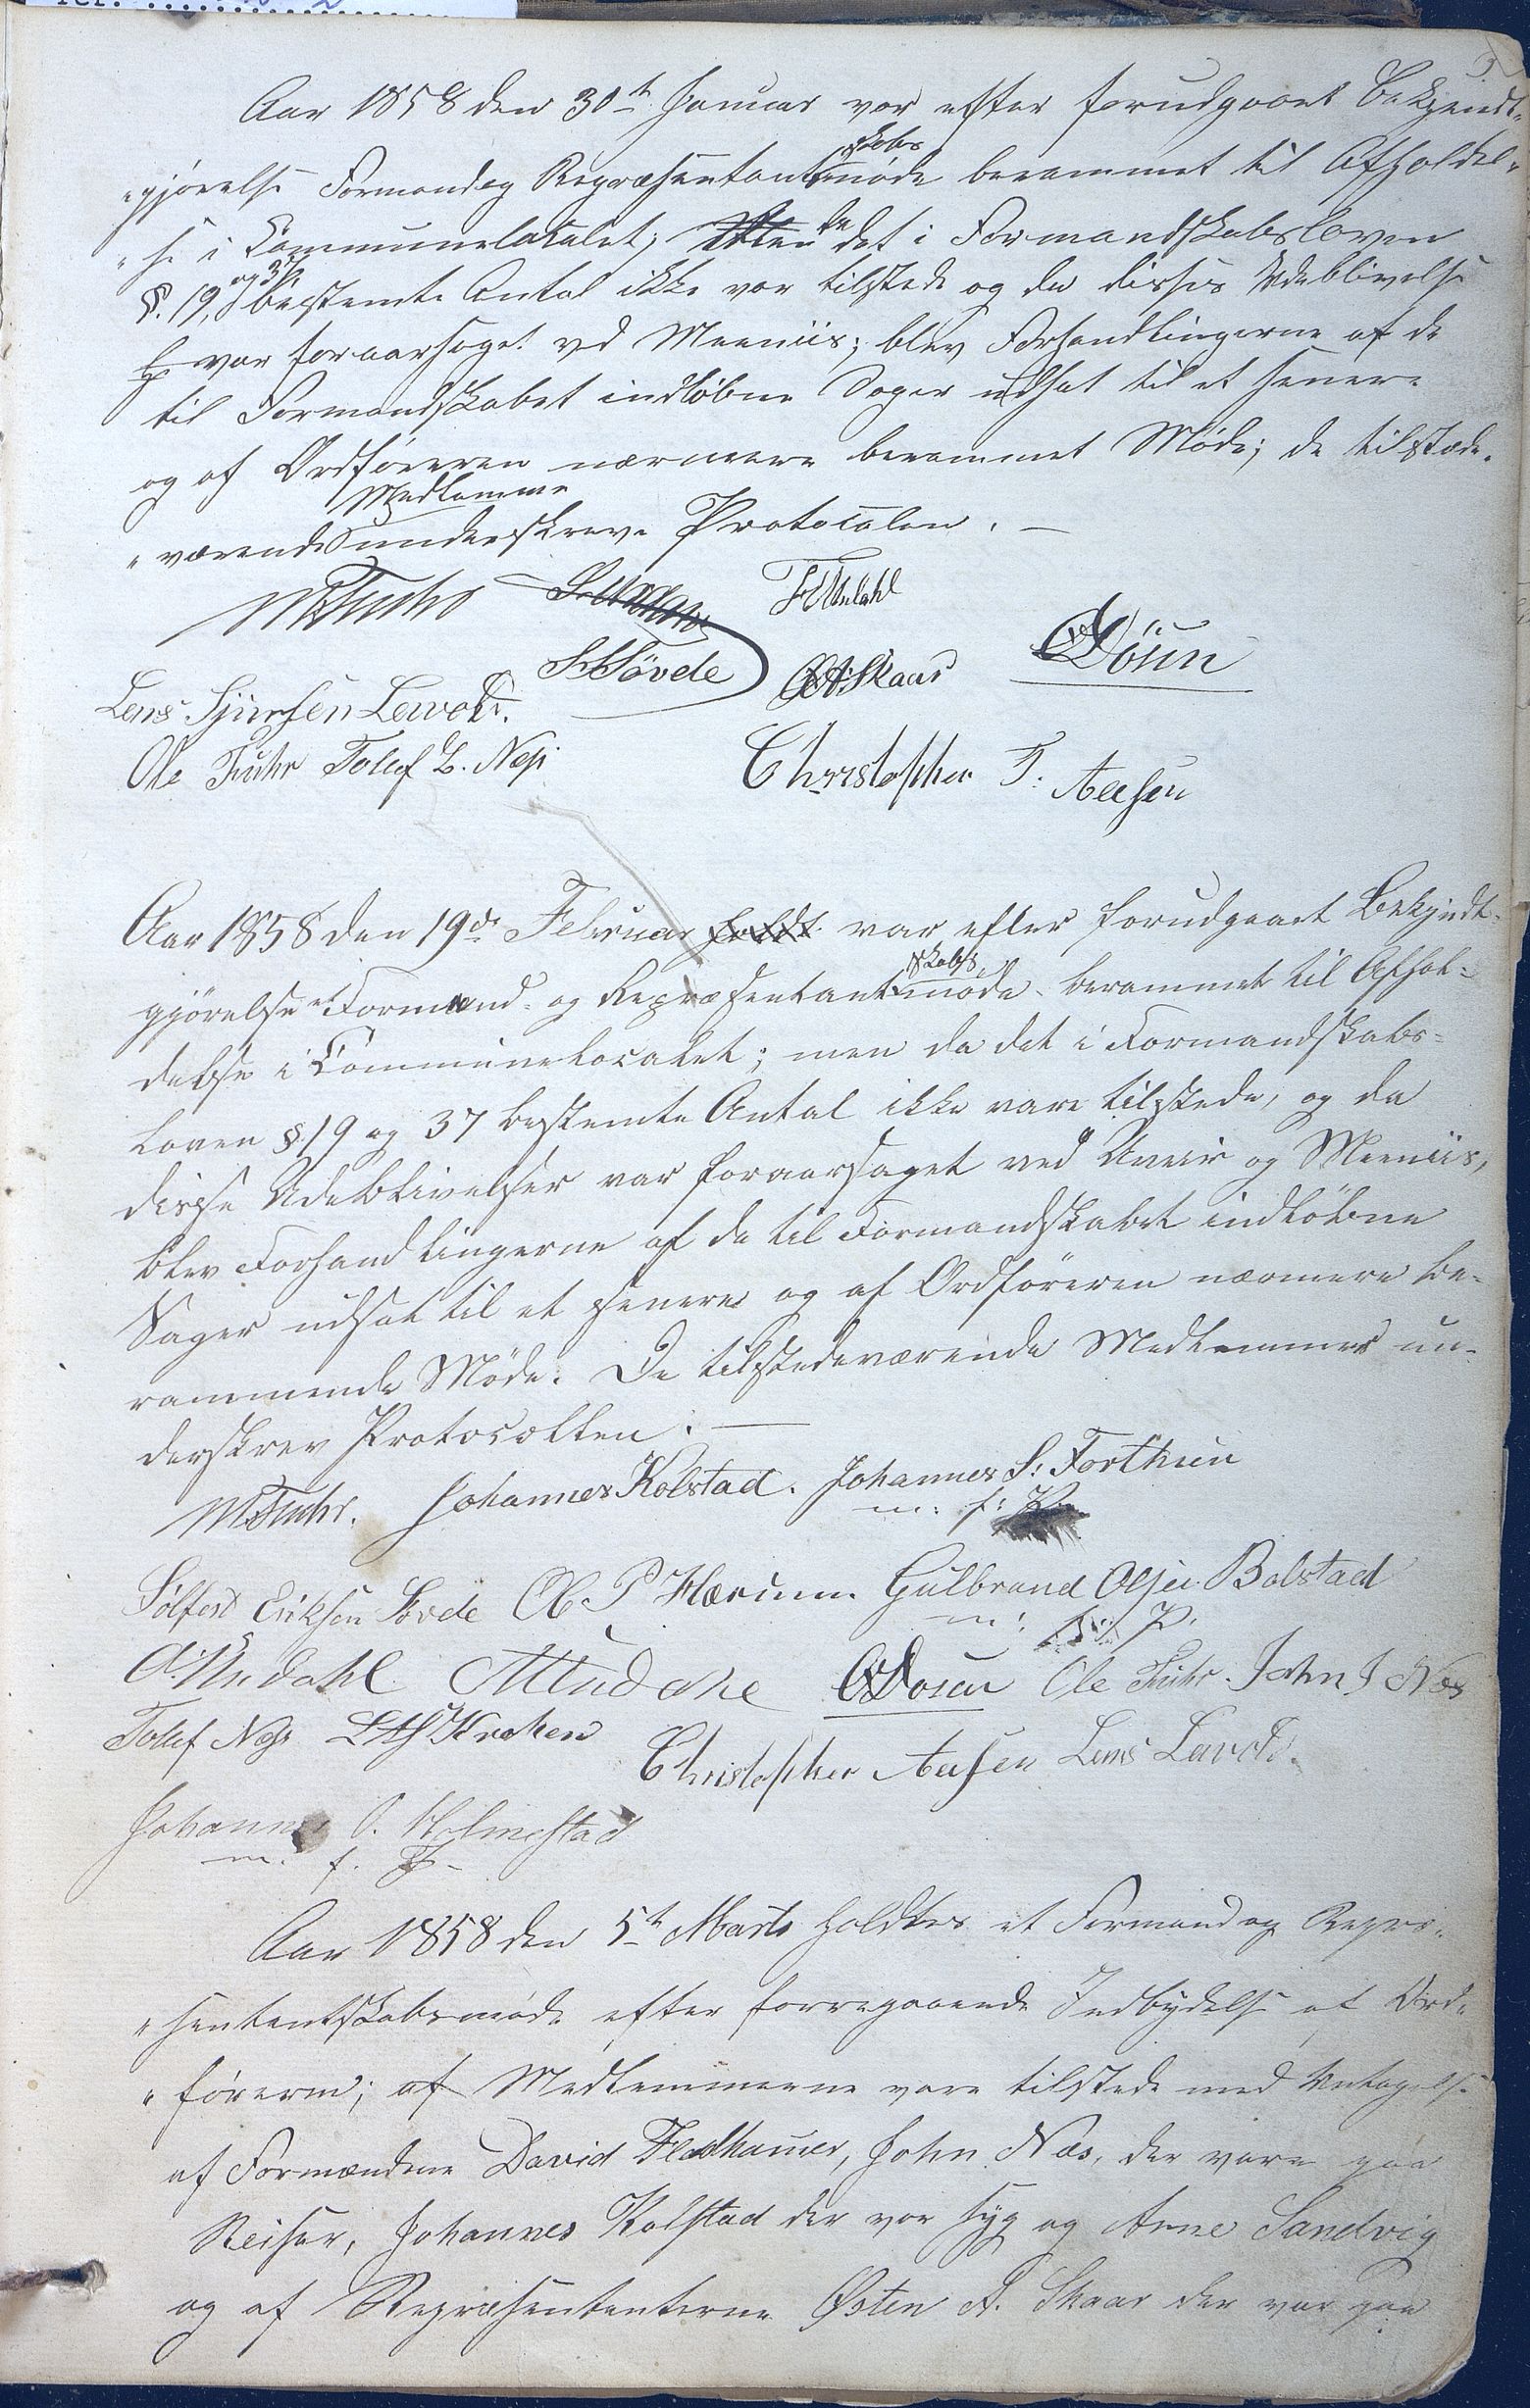 Aar 1858 den 30te Januar var efter forudgaaet Bekjendt-
gjørelse Formand og Repræsentantskabsmøde berammet til Afholdel-
se i Communelocalet; da det i Formandskabsloven
§. 19, og 37, bestemte Antal ikke var tilstede og da disses Udeblivelse
var foraarsaget ved Meeniis; blev Forhandlingerne af de
til Formandskabet indløbne Sager udsat til et senere
og af Ordføreren nærmere berammet Møde; de tilstede-
værende Medlemme underskrev Protocolen. —
M Fuhr
S. E. Søvde A. Skaar O Døsen
Lars Sjursen Lavold.
Ole Fuhr Tollef L. Ness
Christopher T. Aasen
Aar 1858 den 19de Februar holdt var efter forudgaaet Bekjendt-
gjørelse et Formand- og Repræsentantskabsmøde berammet til Afhol-
delse i Communelocalet; men da det i Formandskabs-
loven §. 19 og 37 bestemte Antal ikke vare tilstede, og da
disse Udeblivelser var foraarsaget ved Uveir og Meeniis,
blev Forhandlingerne af de til Formandskabet indløbne
Sager udsat til et senere og af Ordføreren nærmere be-
rammende Møde. De tilstedeværende Medlemmer un-
derskrev Protocollen. —
M Fuhr. Johannes Kolstad. Johannes S. Forthun
m. f. P.
Solfest Eriksen Søvde Ole P Hærum Gulbrand Olsen Bolstad
m. f. P.
A. Undahl O Døsen Ole Fuhr. John J Næs
Tollef Ness Kroken
Christopher Aasen Lars Lavold.
Johannes O. Holmestad
m. f. P.
Aar 1858 den 5te Marts holdtes et Formand og Repræ-
sentantskabsmøde efter forregaaende Indbydelse af Ord-
føreren; af Medlemmerne vare tilstede med Untagelse
af Formændene David Fladhamer, John Næs, der vare paa
Reiser, Johannes Kolstad der var syg og Arne Sandvig
og af Repræsentanterne Østen A. Skaar der var paa